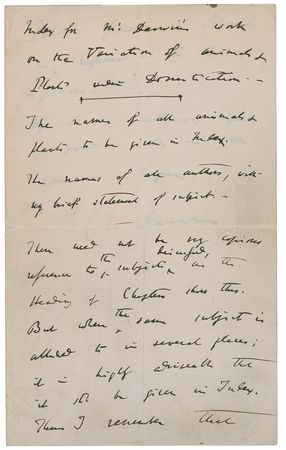 Index for Mr Darwin's work
on the Variation of animals &
Plants under Domestication.—
The names of all animals &
plants to be given in Index.
The names of all authors, with
very brief statement of subject.—
There need not be very copious
reference to the principal subjects, as the
Heading of Chapters shows this.
But when the same subject is
alluded to in several places,
it is highly adviseable that
it shd be given in Index.
Thus I remember that